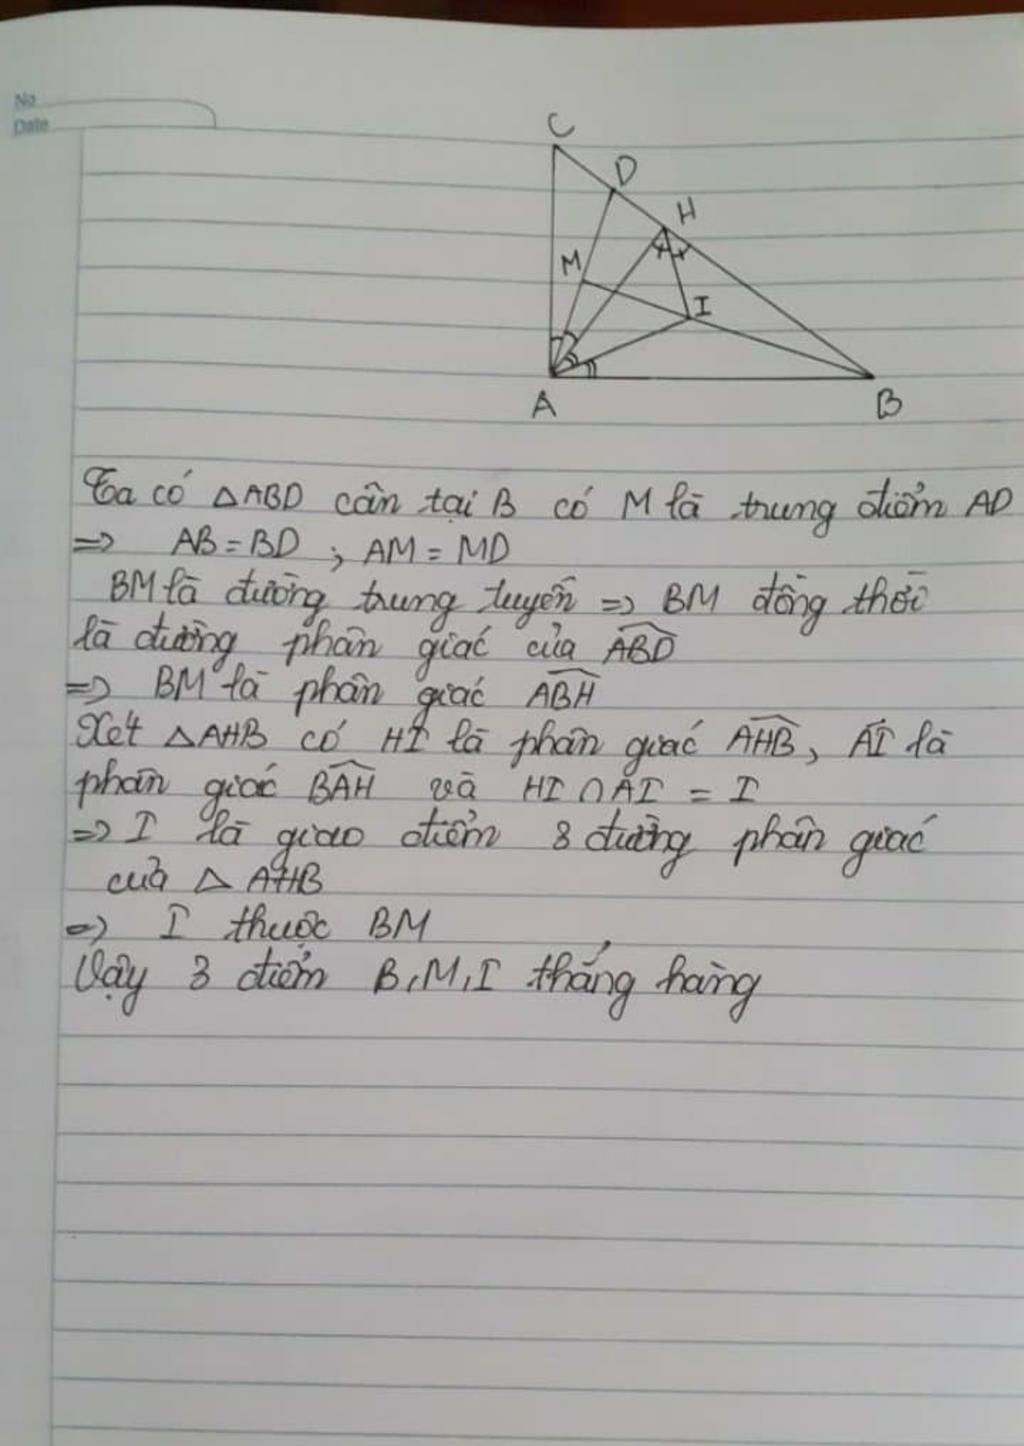 No
Date
C
D
H
M
I
A
B
Ta có △ABD cân tại B có M là trung điểm AD
=> AB = BD ; AM = MD
BM là đường trung tuyến => BM đồng thời
là đường phân giác của ABD
=> BM là phân giác ABH
Xét △AHB có HI là phân giác AHB, AI là
phân giác BAH và HI ∩ AI = I
=> I là giao điểm 3 đường phân giác
của △ AHB
=> I thuộc BM
Vậy 3 điểm B, M, I thẳng hàng